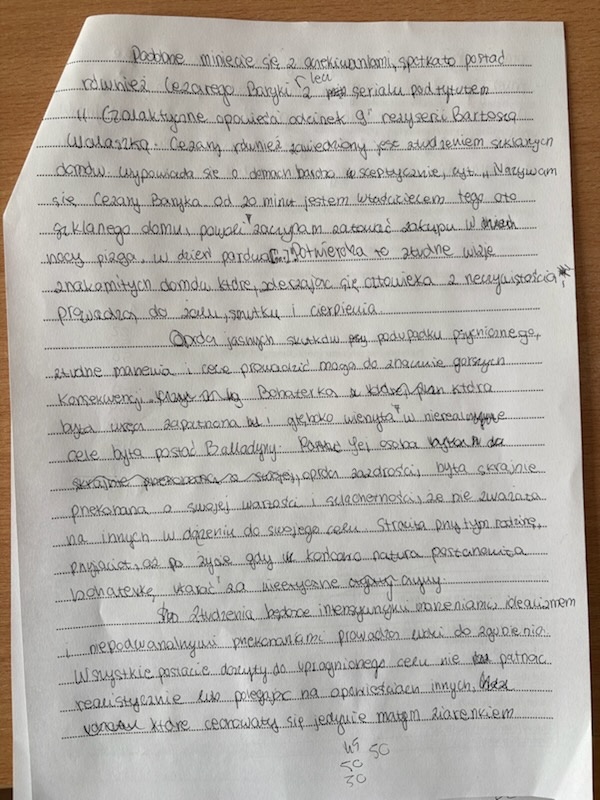 Podobne minięcie się z oczekiwaniami, spotkało postać
również Cezarego Baryki lecz z serialu pod tytułem
"Galaktyczne opowieści odcinek 9" reżyserii Bartosza
Walaszka. Cezary również zawiedziony jest złudzeniem szklanych
domów. Wypowiada się o domach bardzo sceptycznie, cyt. "Nazywam
się Cezary Baryka od 20 minut jestem właścicielem tego oto
szklanego domu, powoli zaczynam żałować zakupu. W
nocy pizga, w dzień parówa[...]. Potwierdza to złudne wizje
znakomitych domów które, zderzając się człowieka z rzeczywistością
prowadzą do żalu, smutku i cierpienia.
Oprócz jasnych skutków podupadku psychicznego,
złudne marzenia i cele prowadzić mogą do znacznie gorszych
konsekwencji. Bohaterka która
była zapatrzona i głęboko wieżyła w nierealne
cele była postać Balladyny. Jej osoba
oprócz zazdrości, była skrajnie
przekonana o swojej wartości i szlachetności, że nie zważała
na innych w dążeniu do swojego celu. Straciła przy tym rodzinę,
przyjaciół, aż po życie gdy końcowo natura postanowiła
bohaterkę ukarać za nieetyczne czyny.
Złudzenia będące intensywnymi marzeniami, idealizmem
i niepodważalnymi przekonaniami prowadzą ludzi do zgubienia.
Wszystkie postacie dążyły do upragnionego celu nie patrząc
realistycznie lub polegając na opowieściach innych,
które cechowały się jedynie małym ziarenkiem
45 50
50
30